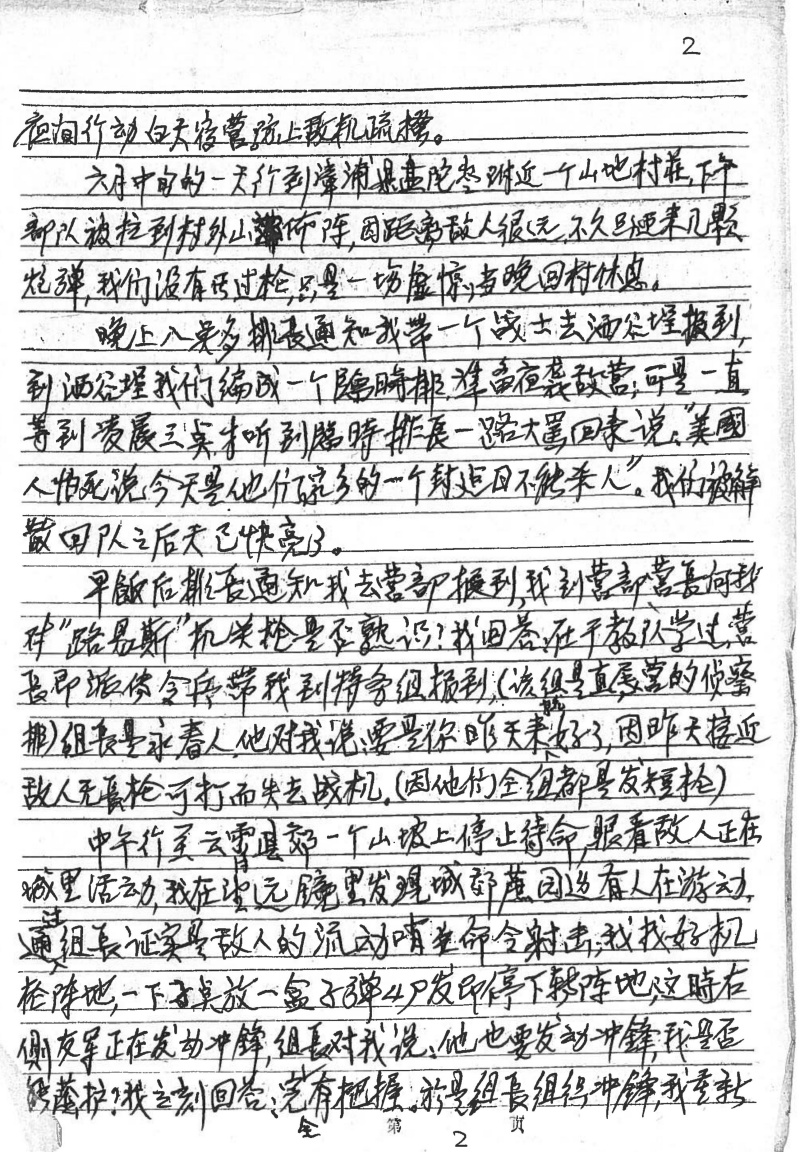 2
夜间行动白天宿营,防上敌机疏散。
六月中旬的一天行到漳浦县盘陀岑附近一个山地村莊,下午
部队被拉到村外山布阵,因距离敌人很远,不久只迎来几颗
炮弹,我们没有开过枪,只是一场虚惊,当晚回村休息。
晚上八点多排長通知我带一个战士去酒谷埕报到,
到酒谷埕我们编成一个臨時排,準备夜袭敌营;可是一直
等到凌晨三点才听到臨時排長一路大罵回来说:“美國
人怕死说今天是他们家乡的一个封建日不能杀人”。我们被解
散回队之后天已快亮了。
早飯后排長通知我去营部报到,我到营部营長问我
对“路易斯”机关枪是否熟识?我回答:在干教队学过,营
長即派传令兵带我到特务组报到,(该组是直属营的侦察
排)组長是永春人,他对我说:要是你昨天来就好了,因昨天接近
敌人无長枪可打而失去战机。(因他们全组都是发短枪)
中午行至云霄县郊一个山坡上停止待命,眼看敌人正在
城里活动,我在望远镜里发现城郊蔗园边有人在游动,
通过组長证实是敌人的流动哨並命令射击;我找好机
枪阵地,一下子点放一盒子弹47发即停下转阵地,这時右
侧友军正在发动冲锋,组長对我说:他也要发动冲锋,我是否
能蔭护?我立刻回答:完全有把握。於是组長组织冲锋,我重新
第 2 页